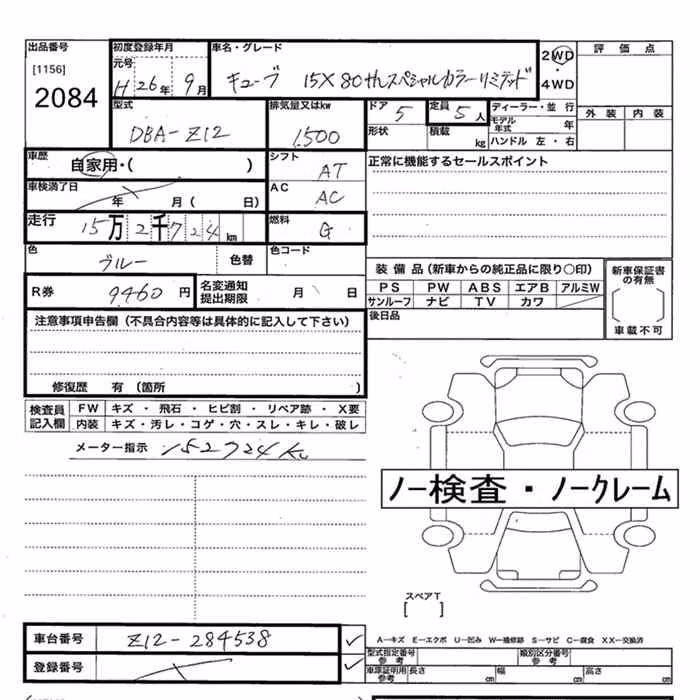 出品番号 初度登録年月 車名・グレード 評価点
[1156] 元号 2WD
2084 H 26年 9月 キューブ 15X 80thスペシャルカラーリミテッド ・
4WD
型式 排気量又はkw ドア 5 定員 5人 ディーラー・並行 外装 内装
DBA-Z12 1,500 形状 積載 kg モデル年式 年
ハンドル 左・右
車歴 自家用・( ) シフト AT 正常に機能するセールスポイント
車検満了日 年 月( 日) AC AC
走行 15万2千724km 燃料 G
色 ブルー 色替 色コード
装備品(新車からの純正品に限り○印) 新車保証書の有無
R券 9460円 名変通知提出期限 月 日 PS PW ABS エアB アルミW
サンルーフ ナビ TV カワ 車載不可
注意事項申告欄(不具合内容等は具体的に記入して下さい) 後日品
修復歴 有(箇所 )
検査員記入欄 FW キズ・飛石・ヒビ割・リペア跡・X要
内装 キズ・汚レ・コゲ・穴・スレ・キレ・破レ
メーター指示 152724km
ノー検査・ノークレーム
スペアT
[ ]
車台番号 Z12-284538 A-キズ E-エクボ U-凹み W-補修跡 S-サビ C-腐食 XX-交換済
型式指定番号 参考 類別区分番号 参考
登録番号 車庫証明用 参考 長さ cm 幅 cm 高さ cm